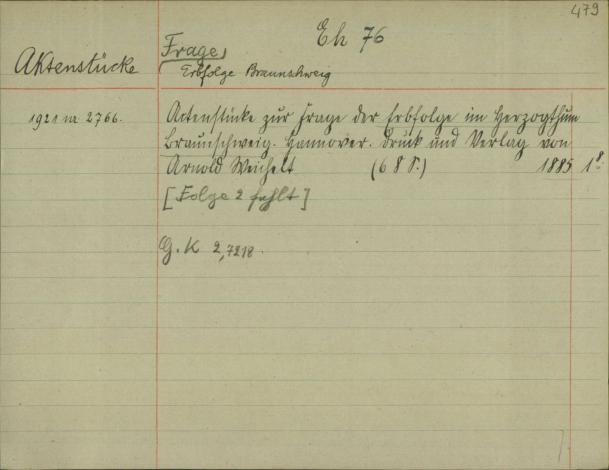 479
Eh 76
Frage,
Aktenstücke
Erbfolge Braunschweig
1921 nr 2766.
Actenstücke zur Frage der Erbfolge im Herzogthum
Braunschweig. Hannover. Druck und Verlag von
Arnold Weichelt (68 S.) 1885 1 8.
[Folge 2 fehlt]
G. K 2,7218.